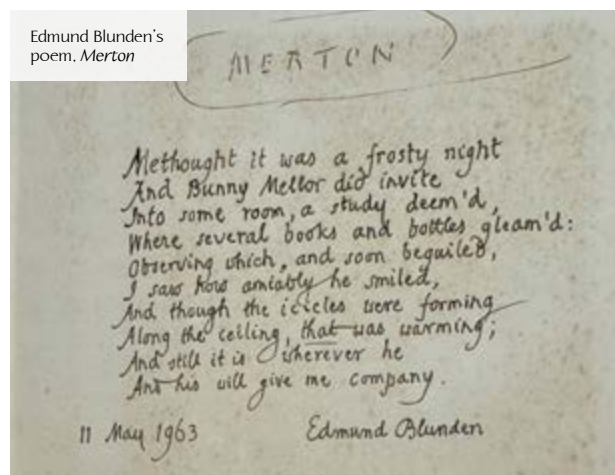 Edmund Blunden's
poem, Merton
MERTON
Methought it was a frosty night
And Bunny Mellor did invite
Into some room, a study deem'd,
Where several books and bottles gleam'd:
Observing which, and soon beguiled,
I saw how amiably he smiled,
And though the icicles were forming
Along the ceiling, that was warming;
And still it is wherever he
And his will give me company.
11 May 1963 Edmund Blunden